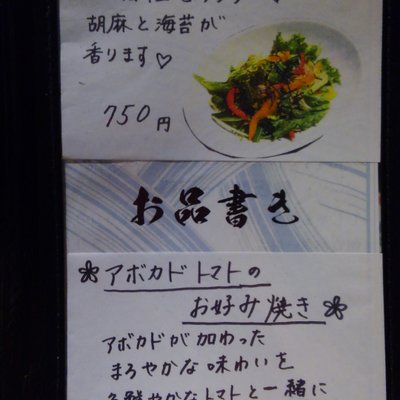 胡麻と海苔が
香ります♡
750円
お品書き
❀アボカドトマトの
お好み焼き❀
アボカドが加わった
まろやかな味わいを
色鮮やかなトマトと一緒に